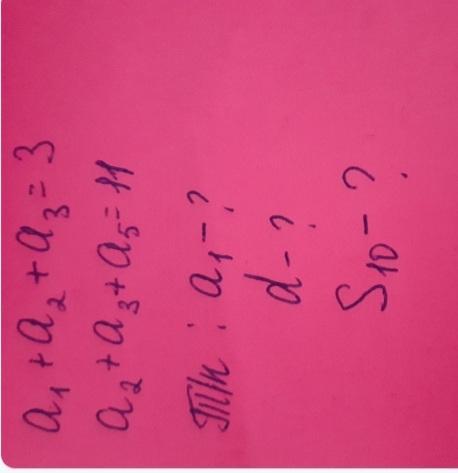 a₁ + a₂ + a₃ = 3
a₂ + a₃ + a₅ = 11
Т/к : a₁ - ?
d - ?
S₁₀ - ?